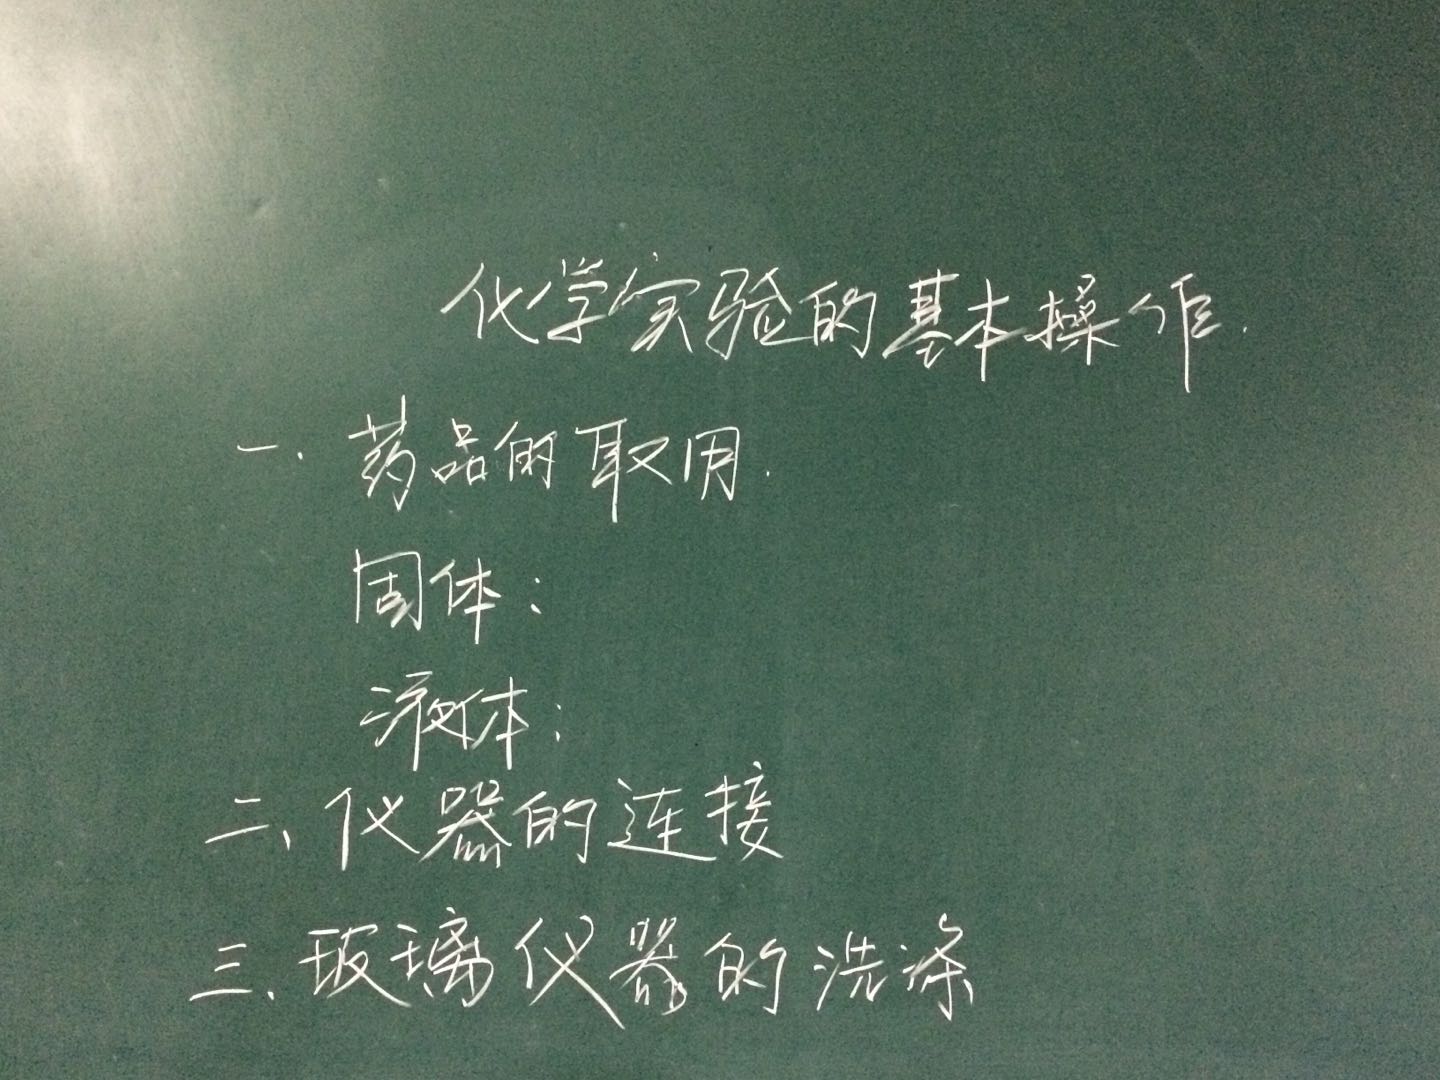 化学实验的基本操作.
一. 药品的取用.
固体:
液体:
二、仪器的连接
三、玻璃仪器的洗涤